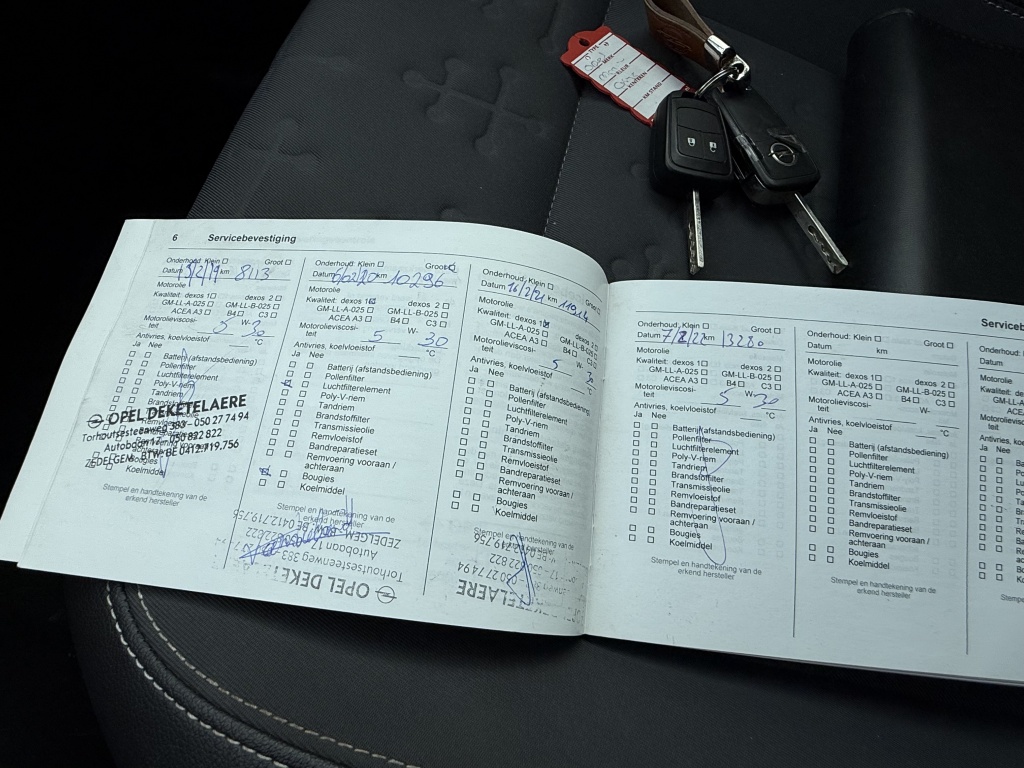 TYPE
MERK
KLEUR
KENTEKEN
KM STAND
6 Servicebevestiging
Onderhoud: Klein ☐ Groot ☐
Datum 13/2/19 km 8113
Motorolie
Kwaliteit: dexos 1☐ dexos 2 ☐
GM-LL-A-025 ☐ GM-LL-B-025 ☐
ACEA A3 ☐ B4 ☐ C3 ☐
Motorolieviscosi-
teit 5 W- 30
Antivries, koelvloeistof °C
Ja Nee
Batterij (afstandsbediening)
Pollenfilter
Luchtfilterelement
Poly-V-riem
Tandriem
OPEL DEKETELAERE
Torhoutsesteenweg 383 - 050 27 74 94
Autobaan 17 - 050 822 822
ZEDELGEM - BTW-BE 0412.719.756
Bougies
Koelmiddel
Stempel en handtekening van de
erkend hersteller
Onderhoud: Klein ☐ Groot ☑
Datum 6/02/20 km 10296
Motorolie
Kwaliteit: dexos 1☑ dexos 2 ☐
GM-LL-A-025 ☐ GM-LL-B-025 ☐
ACEA A3 ☐ B4 ☐ C3 ☐
Motorolieviscosi-
teit 5 W- 30
Antivries, koelvloeistof °C
Ja Nee
Batterij (afstandsbediening)
Pollenfilter
Luchtfilterelement
Poly-V-riem
Tandriem
Brandstoffilter
Transmissieolie
Remvloeistof
Bandreparatieset
Remvoering vooraan /
achteraan
Bougies
Koelmiddel
Stempel en handtekening van de
erkend hersteller
OPEL DEKE
Torhoutsesteenweg 383
Autobaan 17
ZEDELGEM BE 0412.719.756
Onderhoud: Klein ☐ Groot
Datum 16/2/21 km 11914
Motorolie
Kwaliteit: dexos 1☑ dexos 2 ☐
GM-LL-A-025 ☐ GM-LL-B-025 ☐
ACEA A3 ☐ B4 ☐ C3 ☐
Motorolieviscosi-
teit 5 W- 30
Antivries, koelvloeistof °C
Ja Nee
Batterij (afstandsbediening)
Pollenfilter
Luchtfilterelement
Poly-V-riem
Tandriem
Brandstoffilter
Transmissieolie
Remvloeistof
Bandreparatieset
Remvoering vooraan /
achteraan
Bougies
Koelmiddel
Stempel en handtekening van de
erkend hersteller
TELAERE
050 27 74 94
822 822
Onderhoud: Klein ☐ Groot ☐
Datum 7/2/22 km 13280
Motorolie
Kwaliteit: dexos 1 ☐ dexos 2 ☐
GM-LL-A-025 ☐ GM-LL-B-025 ☐
ACEA A3 ☐ B4 ☐ C3 ☐
Motorolieviscosi-
teit 5 W- 30
Antivries, koelvloeistof °C
Ja Nee
Batterij (afstandsbediening)
Pollenfilter
Luchtfilterelement
Poly-V-riem
Tandriem
Brandstoffilter
Transmissieolie
Remvloeistof
Bandreparatieset
Remvoering vooraan /
achteraan
Bougies
Koelmiddel
Stempel en handtekening van de
erkend hersteller
Onderhoud: Klein ☐ Groot ☐
Datum km
Motorolie
Kwaliteit: dexos 1 ☐ dexos 2 ☐
GM-LL-A-025 ☐ GM-LL-B-025 ☐
ACEA A3 ☐ B4 ☐ C3 ☐
Motorolieviscosi-
teit W-
Antivries, koelvloeistof °C
Ja Nee
Batterij (afstandsbediening)
Pollenfilter
Luchtfilterelement
Poly-V-riem
Tandriem
Brandstoffilter
Transmissieolie
Remvloeistof
Bandreparatieset
Remvoering vooraan /
achteraan
Bougies
Koelmiddel
Stempel en handtekening van de
erkend hersteller
Serviceb
Onderhoud:
Datum
Motorolie
Kwaliteit:
GM-L
Motorolie
teit
Antivries,
Ja Nee
Stemp